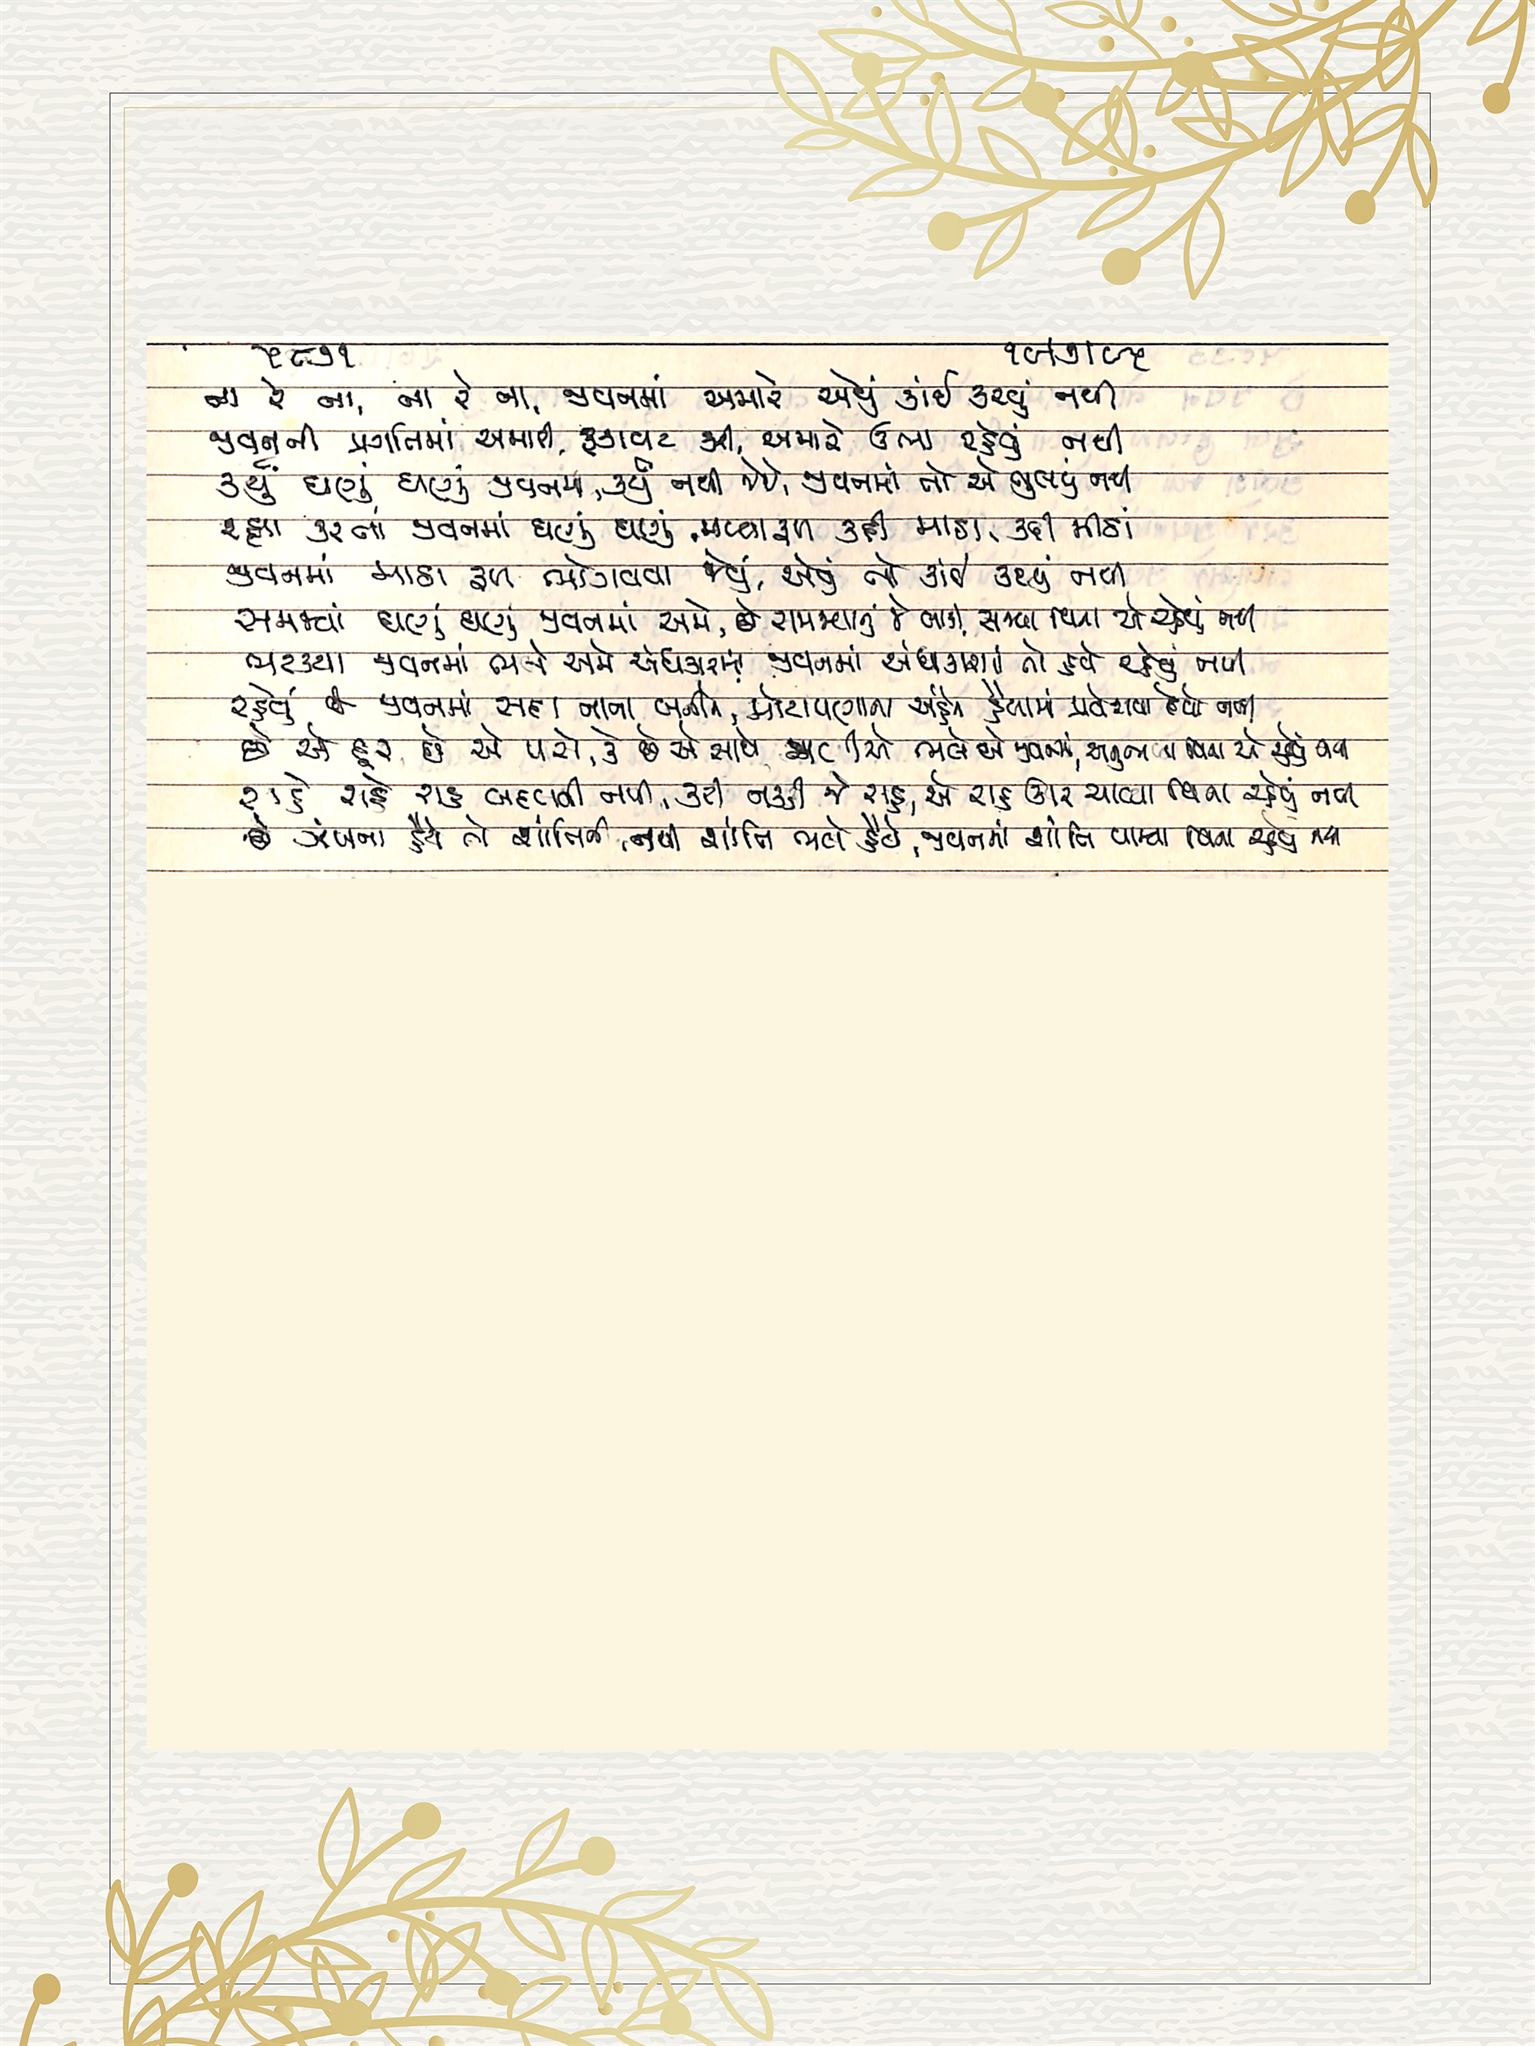 ૫૮૭૧
ના રે ના, ના રે ના, જીવનમાં અમારે એવું કાંઈ કરવું નથી
જીવનની પ્રગતિમાં અમારી, રૂકાવટ કરી, અમારે ઊભા રહેવું નથી
કર્યું ઘણું ઘણું જીવનમાં, કર્યું નથી જે જે, જીવનમાં તો એ ભુલવું નથી
રહ્યા કરતાં જીવનમાં ઘણું ઘણું, મળ્યા ફળ કદી માઠા, કદી મીઠાં
જીવનમાં માઠા ફળ ભોગવવા જેવું, એવું તો કાંઈ કરવું નથી
સમજ્યાં ઘણું ઘણું જીવનમાં અમે, છે સમજવાનું જે બાકી, સમજ્યા વિના એ રહેવું નથી
ભટક્યા જીવનમાં ભલે અમે અંધકારમાં, જીવનમાં અંધકારમાં તો હવે રહેવું નથી
રહેવું છે જીવનમાં સદા નાના બનીને, મોટાપણાના અહંને હૈયામાં પ્રવેશવા દેવો નથી
છે એ દૂર, છે એ પાસે, કે છે એ સાથે ભલે એ જીવનમાં, અનુભવ્યા વિના એ રહેવું નથી
રાહે રાહે રાહ બદલવી નથી, કરી નક્કી જે રાહ, એ રાહ ઉપર ચાલ્યા વિના રહેવું નથી
છે ઝંખના હૈયે તો શાંતિની, નથી શાંતિ ભલે હૈયે, જીવનમાં શાંતિ પામ્યા વિના રહેવું નથી